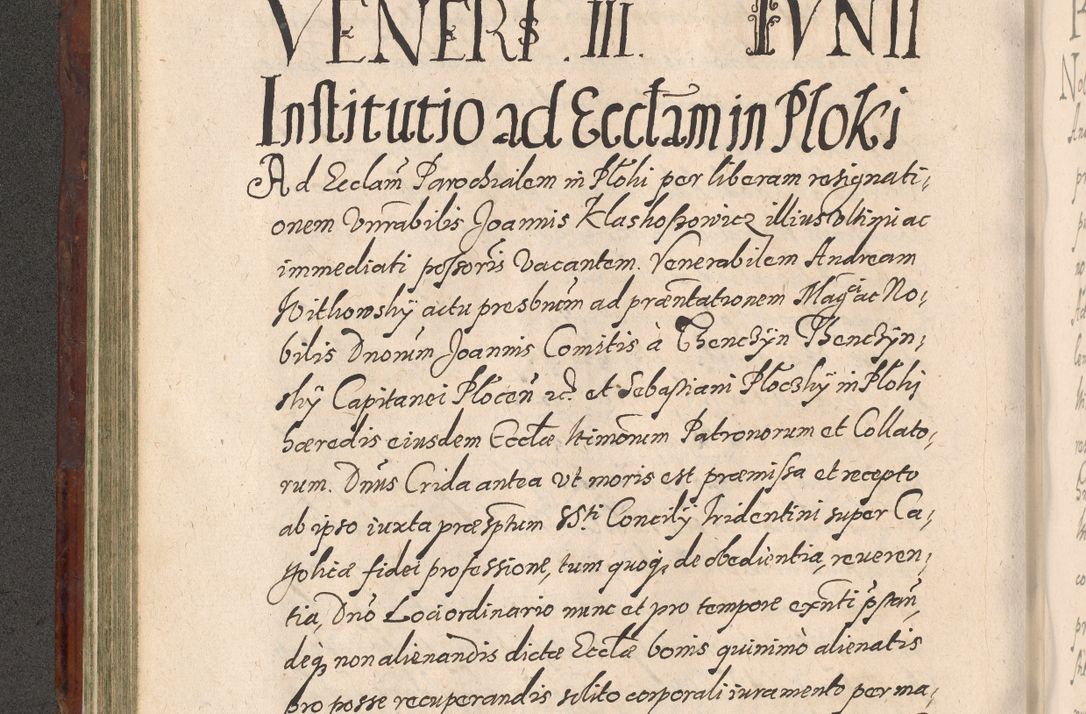 VENERI . III. IVNII
Institutio ad Eccłam in Płoki
Ad Ecclam̃ Parochialem in Płoki per liberam resignati,
onem Vnrabilis Joannis Klaskoszowicz illius Vltimi ac
immediati possoris Vacantem. Venerabilem Andream
Withowskÿ actu presbrum ad præntationem Magci ac No,
bilis Dnorum Joannis Comitis à Thenczÿn Thenczÿn,
skÿ Capitanei Płocen̄ et Sebastiani Płoczkÿ in Płoki
hæredis eiusdem Eccłæ Patronorum et Collato,
rum. Dnus Crida antea Vt moris est præmissa et recepto
ab ipso iuxta præsptum SSti Concilÿ tridentini super Ca,
tholicæ fidei professione, tum quoq, de obedientia, reveren,
tia, Dno Loci ordinario nunc et pro tempore exnti pstan,
deq, non alienandis dictæ Eccłæ bonis quinimò alienatis
pro posse recuperandis solito corporali iuramento per ma,